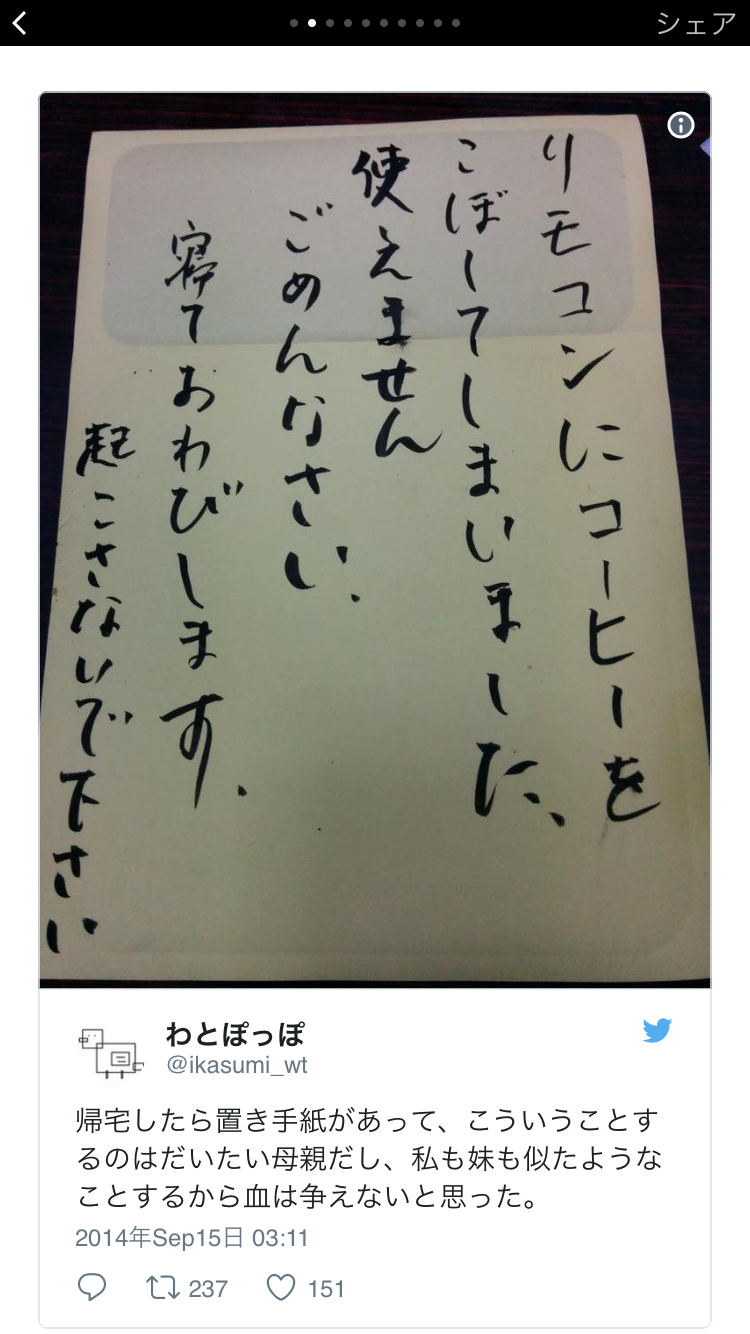 シェア
リモコンにコーヒーを
こぼしてしまいました、
使えません
ごめんなさい、
寝ておわびします、
起こさないで下さい
わとぽっぽ
@ikasumi_wt
帰宅したら置き手紙があって、こういうことす
るのはだいたい母親だし、私も妹も似たような
ことするから血は争えないと思った。
2014年Sep15日 03:11
237 151